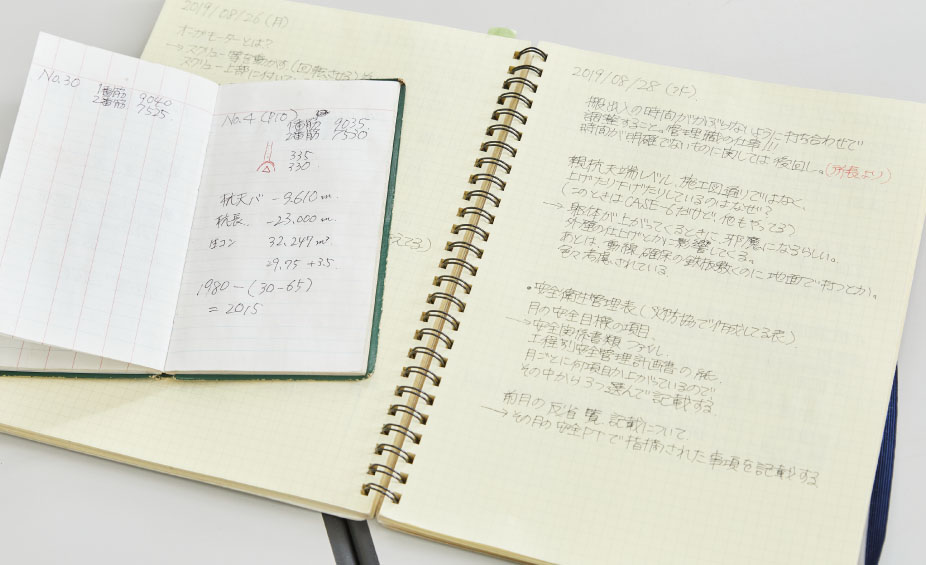 2019/08/26(月)
オーガモーターとは?
→スクリュー等を動かす(回転させる)
スクリュー上部に付いて
No.30
1番筋 9040
2番筋 7525
No.4 (P10)
1番筋 9035
2番筋 7530
335
330
杭天バ -9.610m
杭長 -23.000m
生コン 32.247m³
29.75 +3.5
1980-(30-65)
=2015
えてる)
2019/08/28(水)
搬出入の時間がかぶらないように打ち合わせで
調整すること。管理職の仕事!!!
時間が明確でないものに関しては後回し。(所長より)
親杭天端レベル、施工図通りではなく、
上げたり下げたりしているのはなぜ?
(このときはCASE-6だけど、他もやってる)
→躯体が上がってくるときに、邪魔になるらしい。
外壁の仕上げとかに影響してくる。
あとは、動線確保の鉄板敷くのに地面で打つとか。
色々考慮されている
・安全衛生管理表(災防協で作成してる表)
月の安全目標の項目
→安全関係書類ファイル
工程別安全管理計画書の
月ごとに何項目か上がっているので、
その中から3つ選んで記載する
前月の反省覧 記載について
→その月の安全PTで指摘された事項を記載する